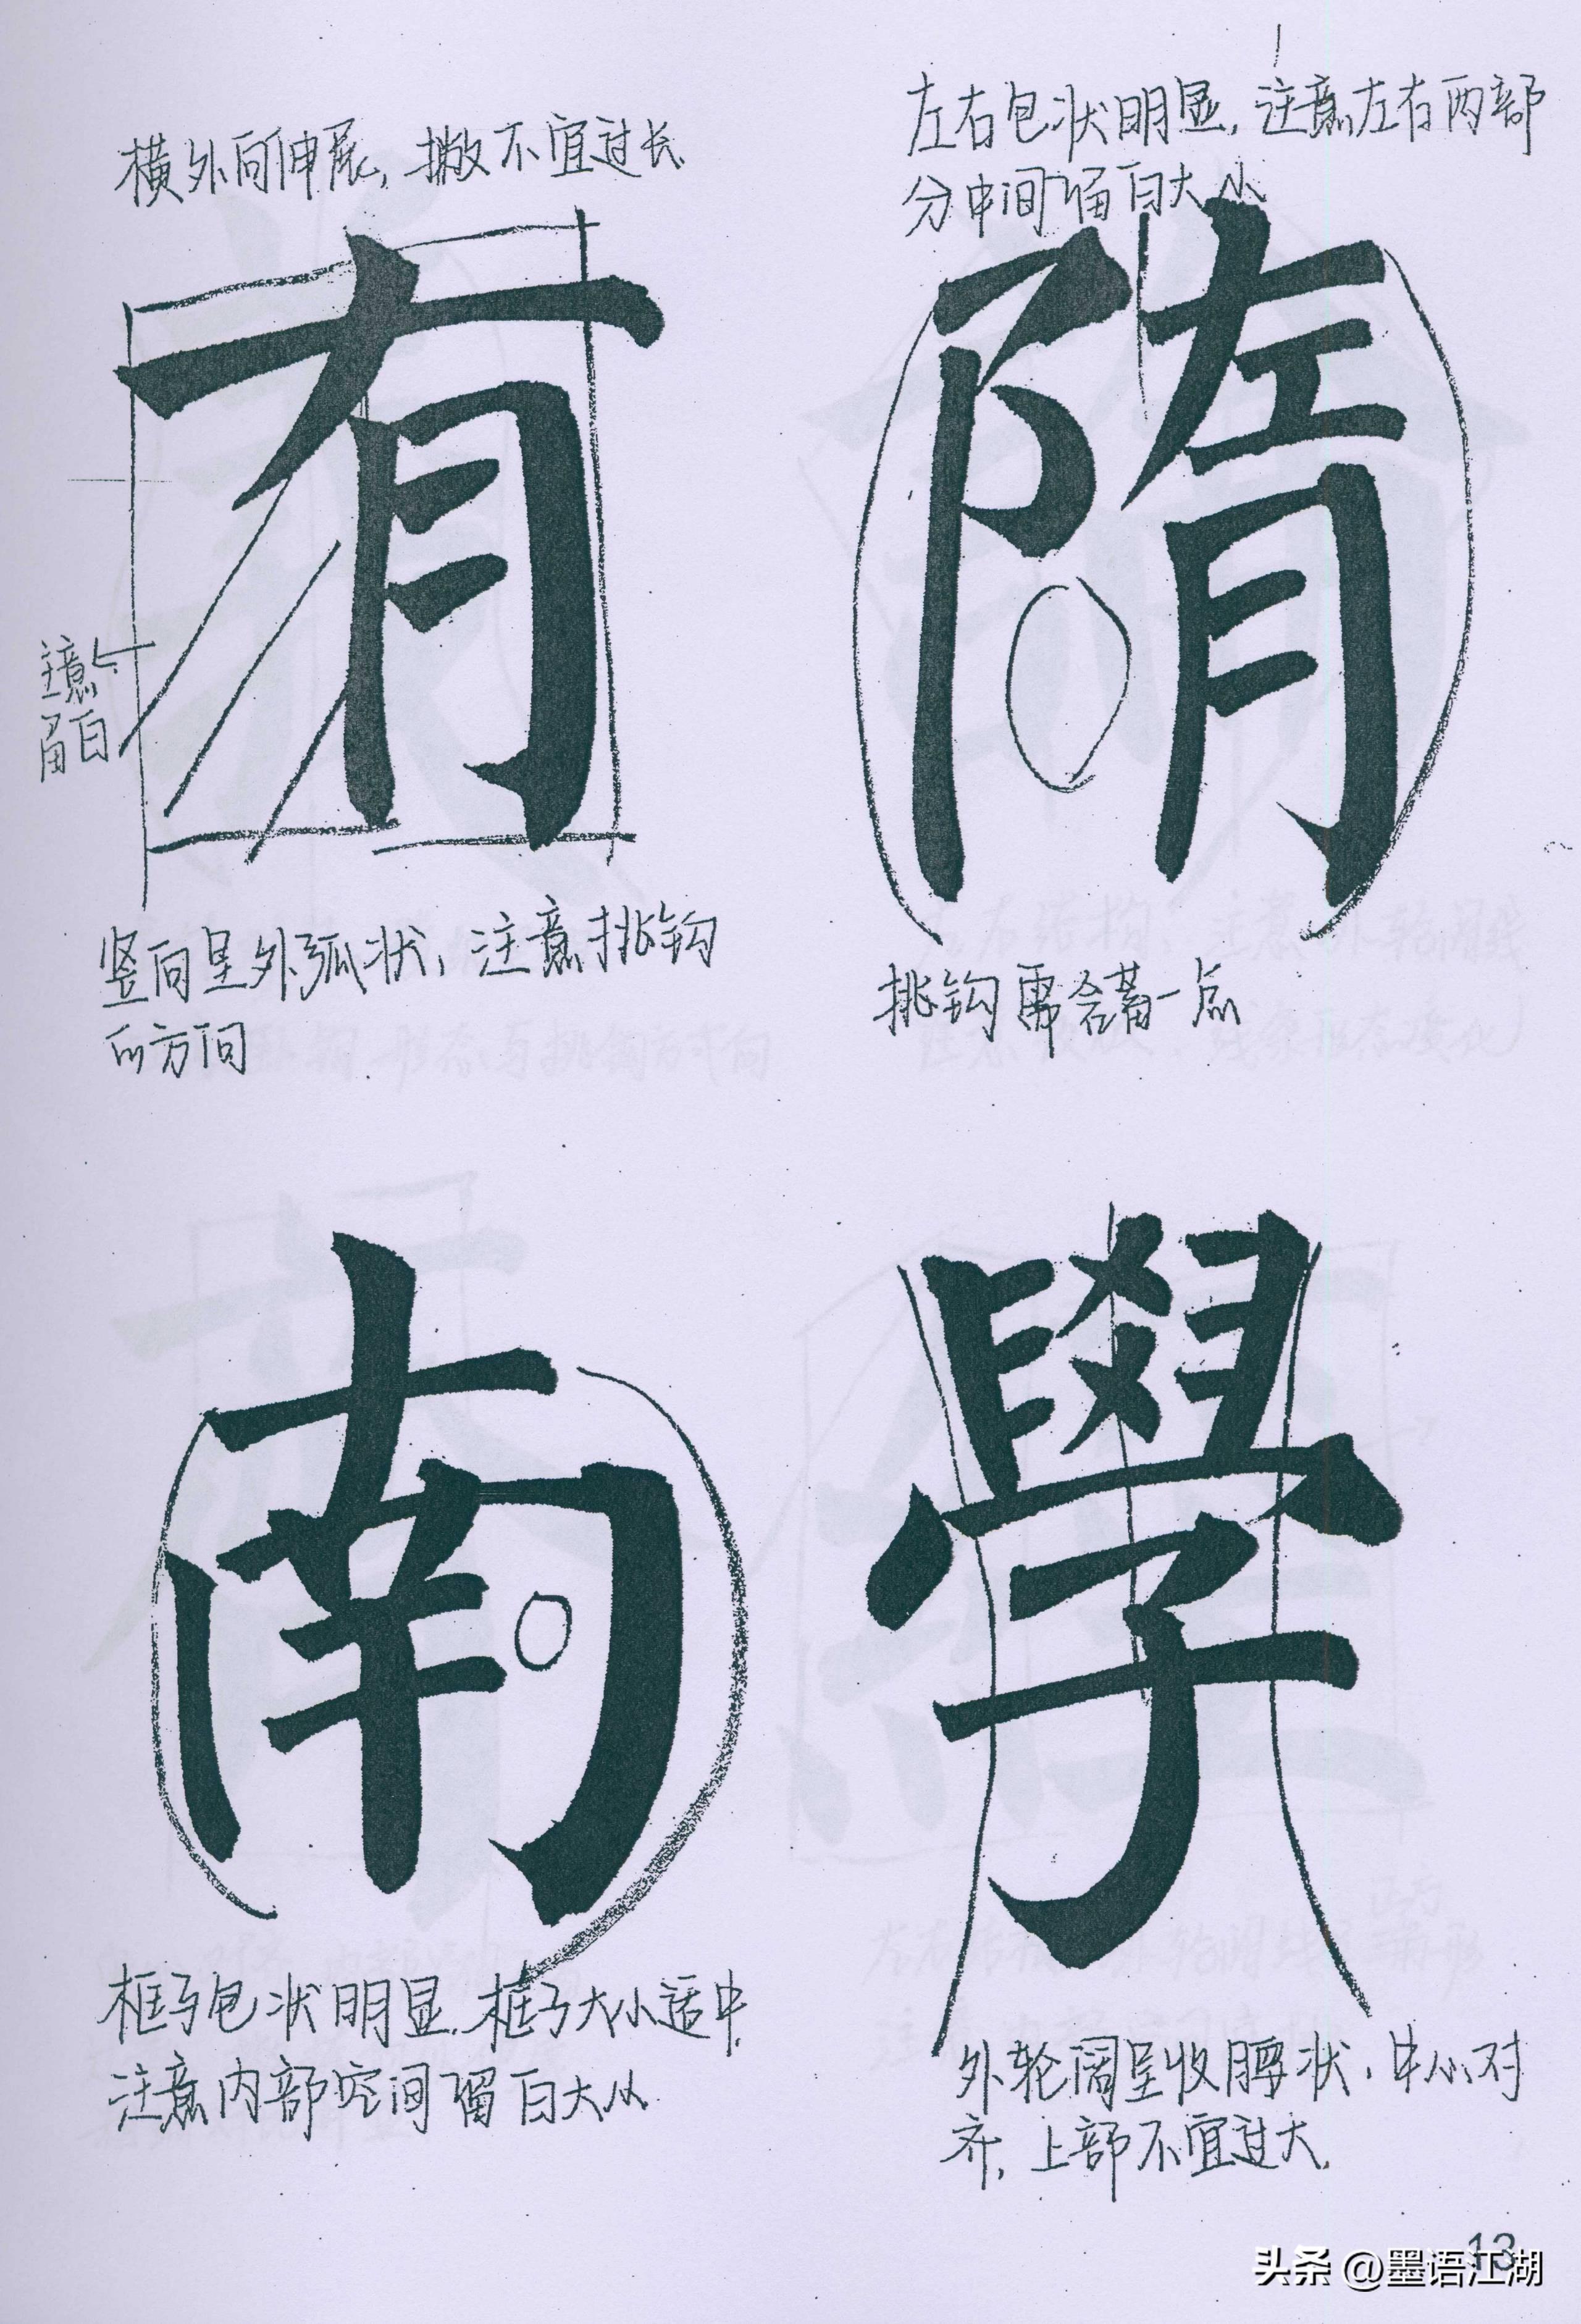 横外向伸展，撇不宜过长
有
注意
留白
竖向呈外弧状，注意挑钩
的方向
左右包状明显，注意左右两部
分中间留白大小
隋
挑钩需含蓄一点
南
框与包状明显.框与大小适中，
注意内部空间留白大小
學
外轮阔呈收腰状，中心对
齐，上部不宜过大.
13
头条 @墨语江湖